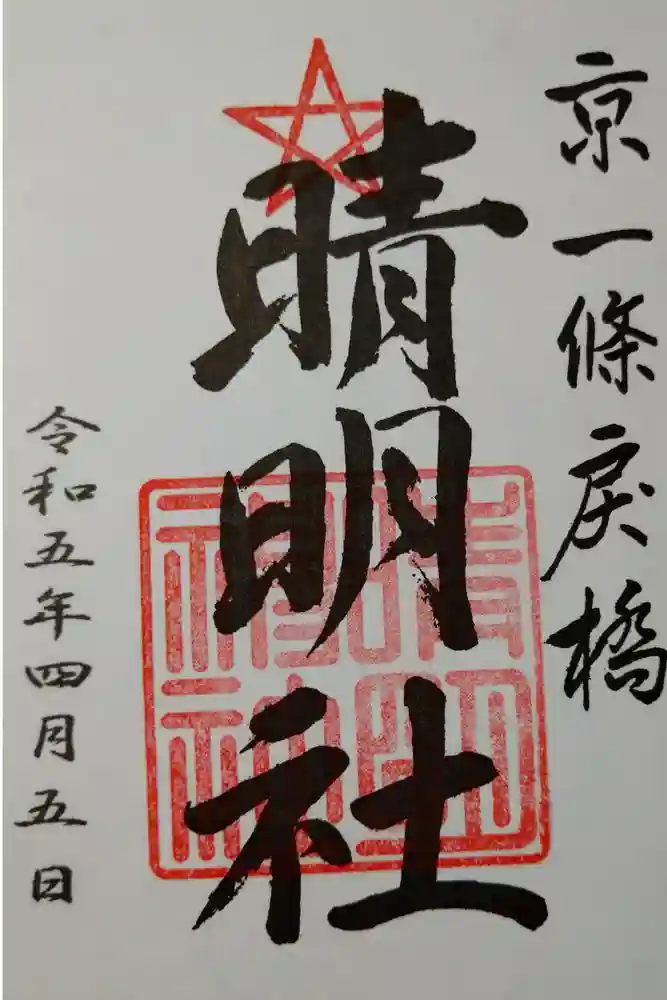 京一條戻橋
晴明社
令和五年四月五日